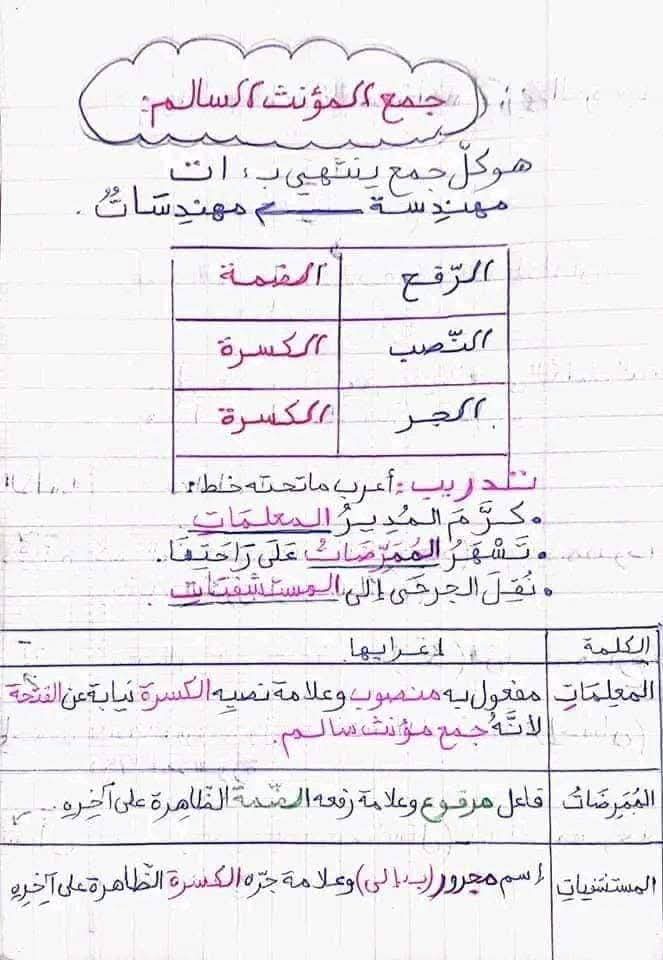 جمع المؤنث السالم:
هو كلّ جمع ينتهي بـ: ات
مهندِسة ← مهندِسَاتٌ.
الرّفع الضمة
النّصب الكسرة
الجر الكسرة
تدريب: أعرب ما تحته خط:
• كرَّمَ المُدِيرُ المعلماتِ.
• تَسْهَرُ المُمَرّضَاتُ عَلَى رَاحَتِنَا.
• نُقِلَ الجرحَى إلى المستشفيَاتِ.
الكلمة إعرابها
المَعلِمَاتِ مفعول به منصوب وعلامة نصبه الكسرة نيابة عن الفتحة
لأنَّهُ جمع مؤنث سالم.
المُمَرِضَاتُ فاعل مرفوع وعلامة رفعه الضّمة الظّاهرة على آخِرِهِ.
المستشفياتِ إسم مجرور (بـ إلى) وعلامة جرّه الكسرة الظّاهرة على آخِرِهِ